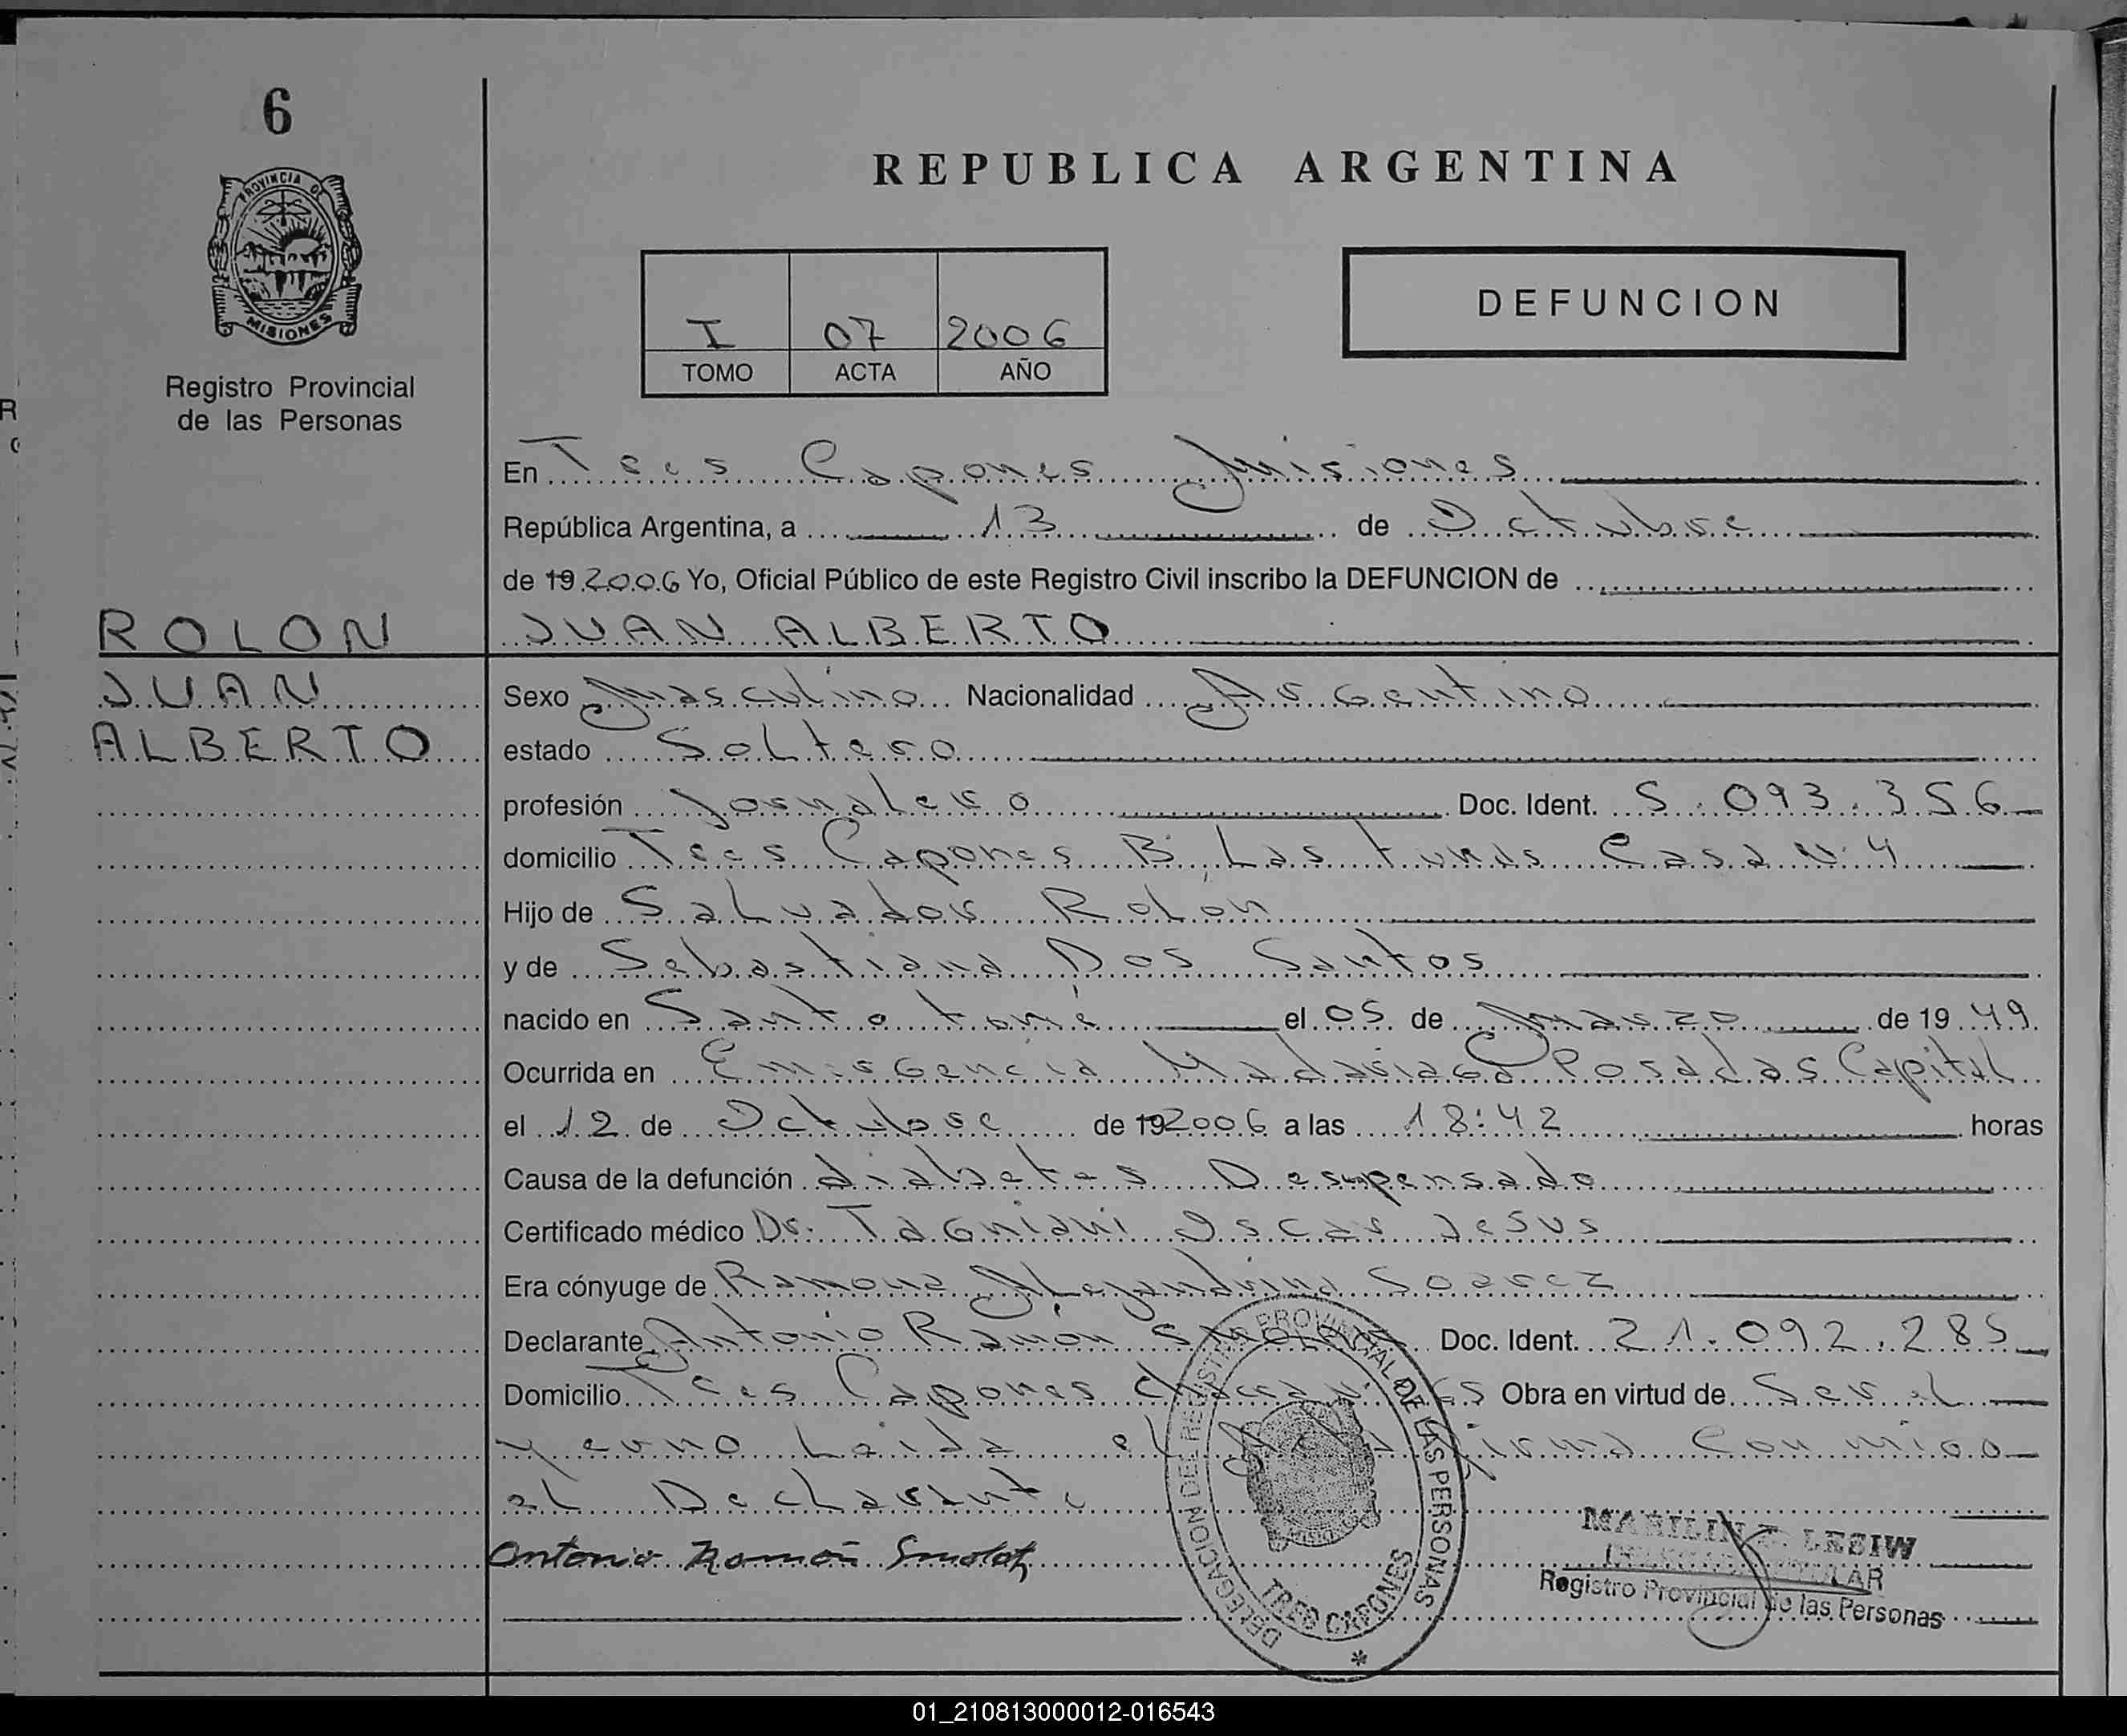 6
PROVINCIA DE
MISIONES
Registro Provincial
de las Personas
REPUBLICA ARGENTINA
I 07 2006
TOMO ACTA AÑO
DEFUNCION
En Tres Capones Misiones
República Argentina, a 13 de Octubre
de 19 2006 Yo, Oficial Público de este Registro Civil inscribo la DEFUNCION de
ROLON JUAN ALBERTO
JUAN
ALBERTO
Sexo Masculino Nacionalidad Argentino
estado Soltero
profesión Jornalero Doc. Ident. 5.093.356
domicilio Tres Capones B Las tunas Casa N 4
Hijo de Salvador Rolón
y de Sebastiana Dos Santos
nacido en Santo tomé el 05 de Marzo de 19 49
Ocurrida en Emergencia Madariaga Posadas Capital
el 12 de Octubre de 19 2006 a las 18:42 horas
Causa de la defunción diabetes Despensado
Certificado médico Dr. Tagniani Oscar Jesus
Era cónyuge de Ramona Alejandrina Soarez
Declarante Antonio Ramón Doc. Ident. 21.092.285
Domicilio Tres Capones Obra en virtud de Ser el
yerno Leida el Acta firma Con migo
el Declarante
Antonio Ramón Smolak
DELEGACION DEL REGISTRO PROVINCIAL DE LAS PERSONAS
TRES CAPONES
*
MARILIN LESIW
Registro Provincial de las Personas
01_210813000012-016543